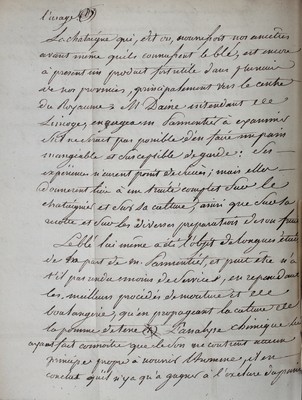 l'usage (18)
La chataigne qui, dit on, nourrissoit nos ancêtres
avant même qu'ils connussent le blé, est encore
à present un produit fort utile dans plusieurs
de nos provinces, principalement vers le centre
du Royaume. Mr Daine intendant de
Limoges, engagea M. Parmentier à examiner
s'il ne seroit pas possible d'en faire un pain
mangeable et susceptible de garde. Ses
experiences n'eurent point de succès; mais elles
donnerent lieu à un traité complet sur le
chataignier et sur sa culture, ainsi que sur la
recolte et sur les diverses preparations de son fruit.
Le blé lui même a été l'objet de longues études
de la part de M. Parmentier, et peut être n'a
t'il pas rendu moins de service, en repandant
les meilleurs procedés de mouture et de
boulangerie, qu'en propageant la culture de
la pomme de terre. L'analyse chimique lui
ayant fait connoitre que le son ne contient aucun
principe propre à nourrir l'homme, il en
conclut qu'il n'y a qu'à gagner à l'exclure du pain